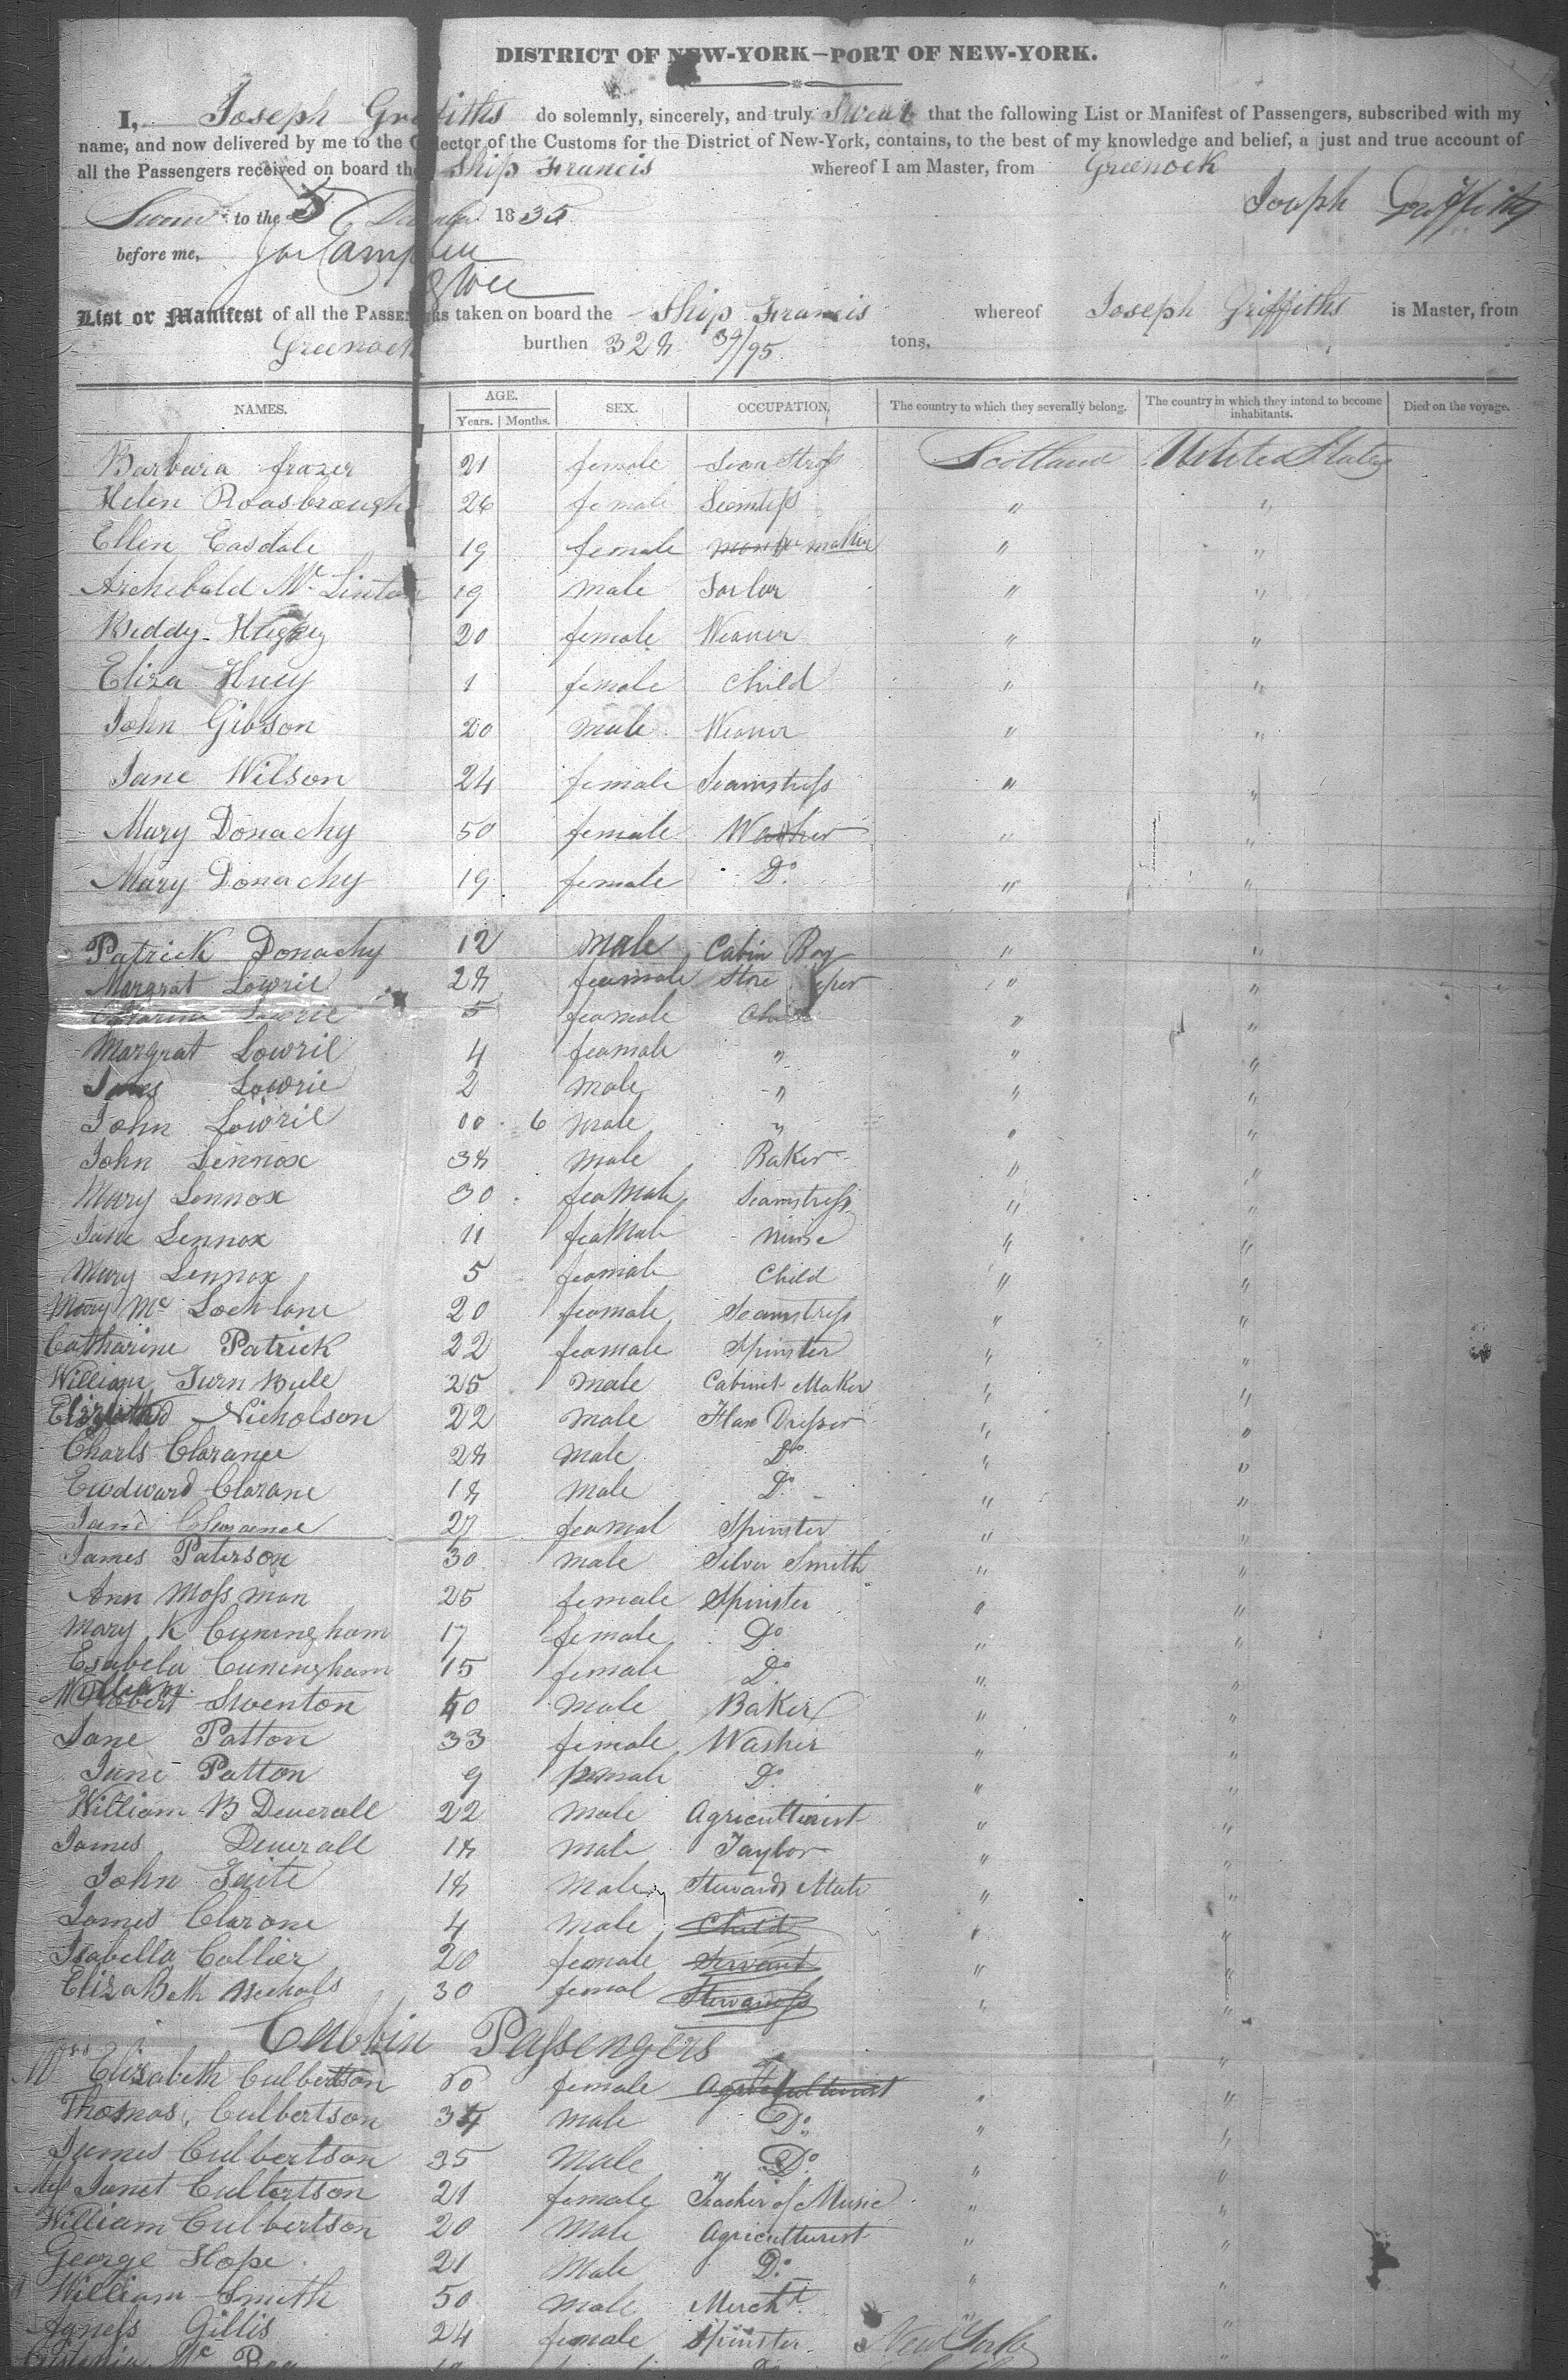 DISTRICT OF NEW-YORK—PORT OF NEW-YORK.
I, Joseph Griffiths do solemnly, sincerely, and truly Swear that the following List or Manifest of Passengers, subscribed with my
name, and now delivered by me to the Collector of the Customs for the District of New-York, contains, to the best of my knowledge and belief, a just and true account of
all the Passengers received on board the Ship Francis whereof I am Master, from Greenock
Sworn to the 5 December 1835 Joseph Griffiths
before me, Campbell
List or Manifest of all the PASSENGERS taken on board the Ship Francis whereof Joseph Griffiths is Master, from
Greenock burthen 328 34/95 tons.
NAMES. AGE. Years. Months. SEX. OCCUPATION. The country to which they severally belong. The country in which they intend to become inhabitants. Died on the voyage.
Barbara Frazer 21 female Scotland United States
Helen Roasbrough 26 female " "
Ellen Easdale 19 female " "
Archebald Mc Linton 19 male " "
Biddy 20 female Weaver " "
Eliza Huey 1 female Child " "
John Gibson 20 male Weaver " "
Jane Wilson 24 female Seamstress " "
Mary Donachy 50 female Washer " "
Mary Donachy 19 female Do " "
Patrick Donachy 12 male Cabin Boy " "
Margrat Lowrie 28 feamale Store " "
Lowrie 5 feamale Child " "
Margrat Lowrie 4 feamale " " "
Lowrie 2 male " " "
John Lowrie 00 6 male " " "
John Lennox 38 male Baker " "
Mary Lennox 30 feamale Seamstress " "
Jane Lennox 11 feamale Nurse " "
Mary Lennox 5 feamale Child " "
Mary Mc Lochlane 20 feamale Seamstress " "
Catharine Patrick 22 feamale Spinster " "
William Turnbull 25 male Cabinet Maker " "
Nicholson 22 male Flax Dresser " "
Charls Clarance 28 male Do " "
Eudward Clarane 18 male Do " "
Jane Clarance 27 feamal Spinster " "
James Paterson 30 male Silver Smith " "
Ann Mossman 25 female Spinster " "
Mary K Cuningham 17 female Do " "
Esabela Cuningham 15 female Do " "
William Swenton 40 male Baker " "
Jane Patton 33 female Washer " "
Jane Patton 9 female Do " "
William B Deverall 22 male Agriculturist " "
James Deverall 18 male Taylor " "
John 18 Male Stewards Mate " "
James Clarane 4 male Child " "
Isabella Collier 20 female Servant " "
ElizaBeth Nichols 30 femal Stewardess " "
Cabbin Passengers "
Mrs Elizabeth Culbertson 60 female Agriculturist " "
Thomas Culbertson 34 male Do " "
James Culbertson 25 Male Do " "
Mrs Janet Culbertson 21 female Teacher of Music " "
William Culbertson 20 Male Agriculturist " "
George Hope 21 Male Do " "
William Smith 50 Male Mercht " "
Agness Gillis 24 female Spinster New York "
Mc